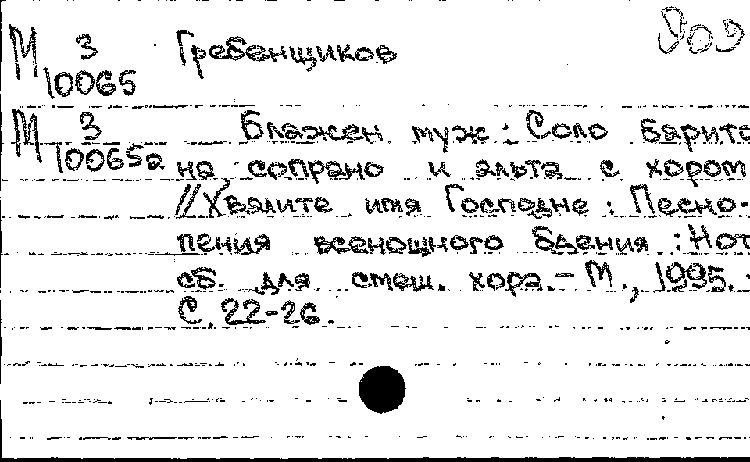 М 3 Гребенщиков 909
10065
М 3 Блажен муж : Соло барито
10065а на сопрано и альта с хором
// Хвалите имя Господне : Песно-
пения всенощного бдения : Нот
сб. для смеш. хора. - М., 1995. -
С. 22-26.